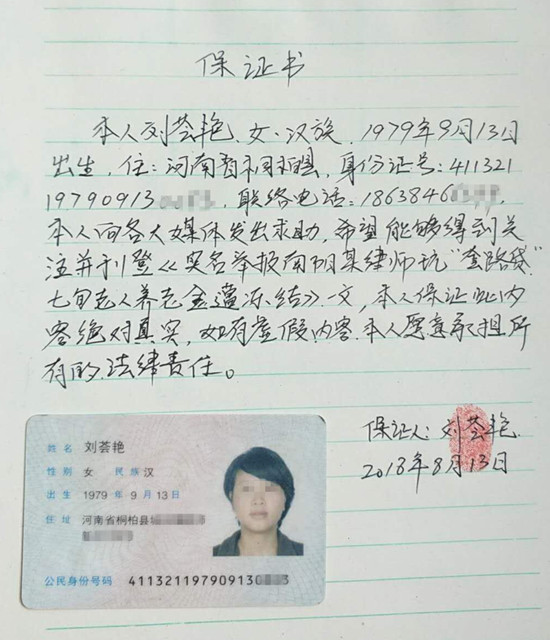 保证书
本人刘荟艳,女、汉族,1979年9月13日
出生,住:河南省桐柏县,身份证号:411321
19790913 ,联络电话:1863846 ,
本人向各大媒体发出求助,希望能够得到关
注并刊登《实名举报南阳某律师坑"套路贷"
七旬老人养老金遭冻结》一文,本人保证此内
容绝对真实,如有虚假内容.本人愿意承担所
有的法律责任。
保证人:刘荟艳
2018年8月13日
姓名 刘荟艳
性别 女 民族 汉
出生 1979 年 9 月 13 日
住址 河南省桐柏县
公民身份号码 411321197909130